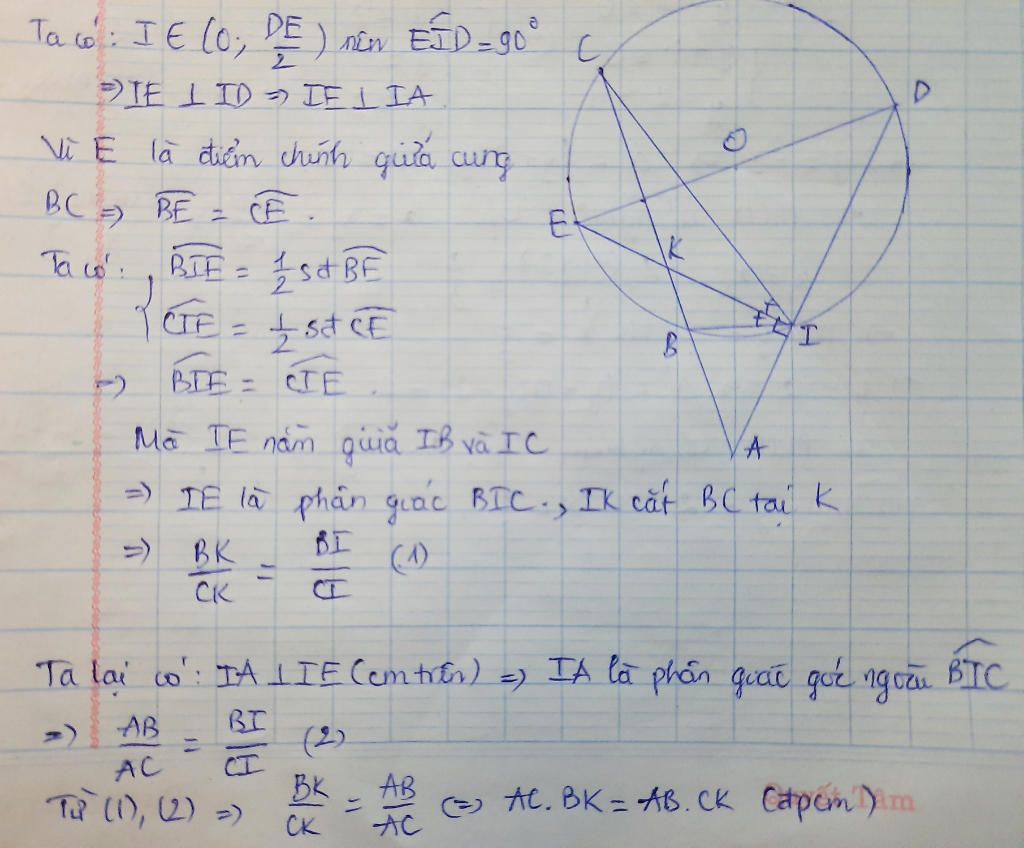 Ta có: I ∈ (O; DE/2) nên EID̂ = 90°
=> IE ⊥ ID => IE ⊥ IA
Vì E là điểm chính giữa cung
BC => BE⌢ = CE⌢.
Ta có: { BIÊ = 1/2 sđ BE⌢
CIÊ = 1/2 sđ CE⌢
=> BIÊ = CIÊ.
Mà IE nằm giữa IB và IC
=> IE là phân giác BIC., IK cắt BC tại K
=> BK/CK = BI/CI (1)
Ta lại có: IA ⊥ IE (cm trên) => IA là phân giác góc ngoài BIĈ
=> AB/AC = BI/CI (2)
Từ (1), (2) => BK/CK = AB/AC <=> AC.BK = AB.CK (đpcm)
C
D
O
E
K
B
I
A